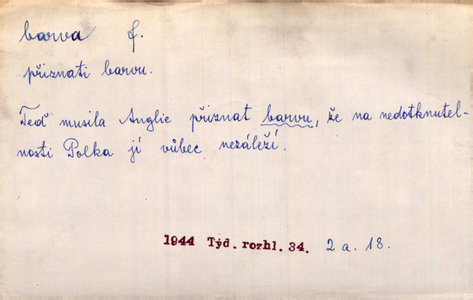 barva f.
přiznati barvu.
Teď musila Anglie přiznat barvu, že na nedotknutel-
nosti Polka jí vůbec nezáleží.
1944 Týd. rozhl. 34. 2 a. 18.